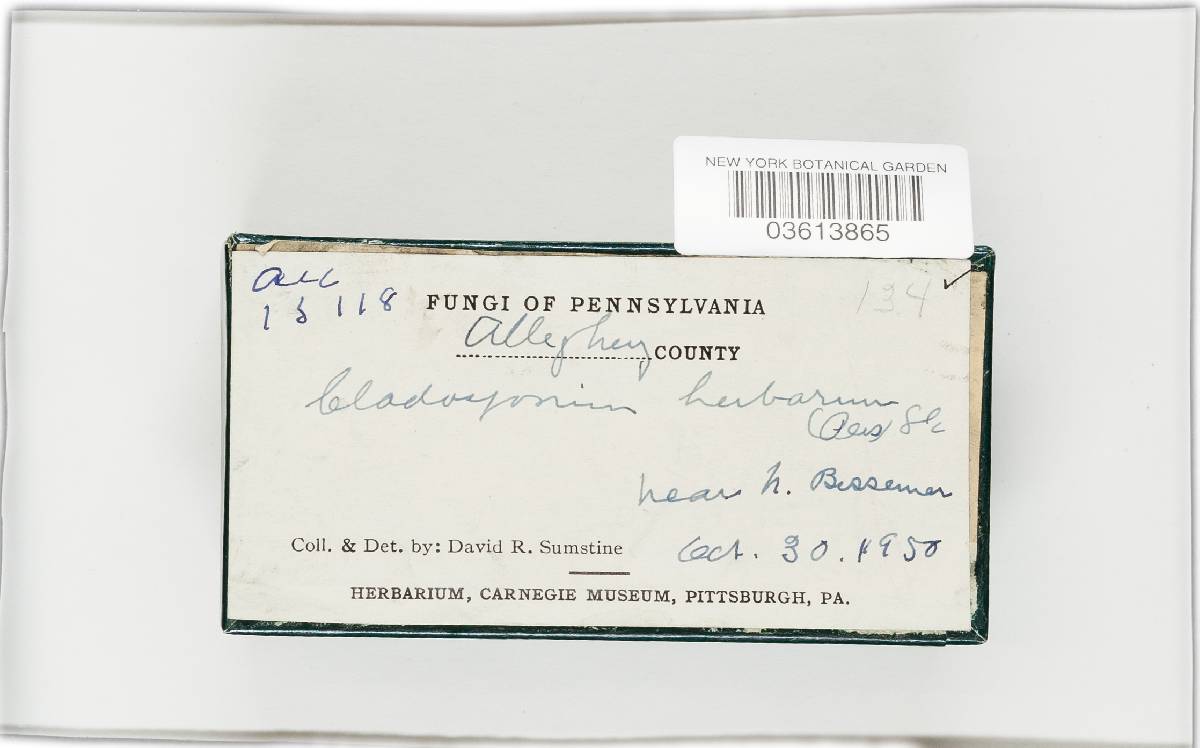 NEW YORK BOTANICAL GARDEN
03613865
acc
134
15118
FUNGI OF PENNSYLVANIA
Allegheny COUNTY
Cladosporium herbarum
(Pers)
near N. Bessemer
Coll. & Det. by: David R. Sumstine Oct. 30. 1950
HERBARIUM, CARNEGIE MUSEUM, PITTSBURGH, PA.